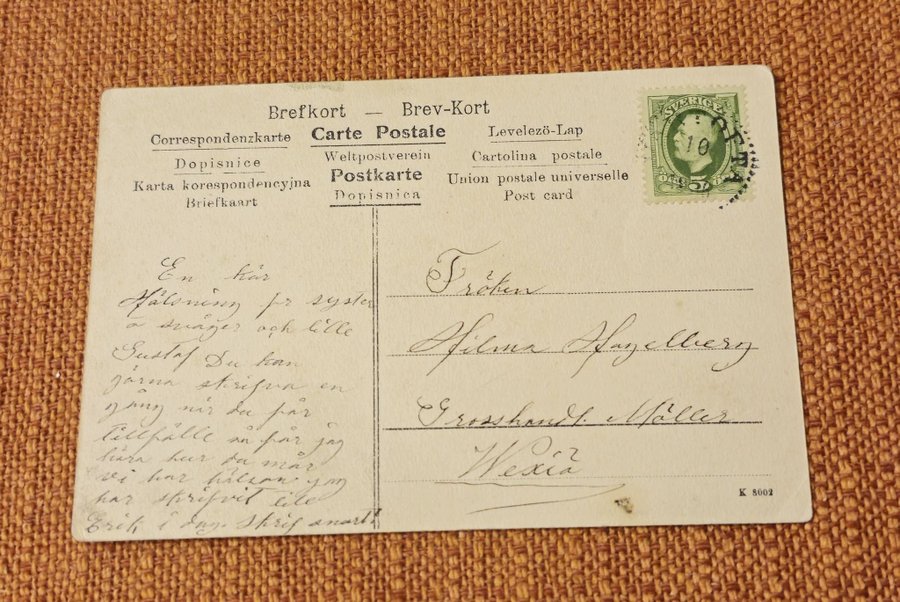 Brefkort — Brev-Kort
Correspondenzkarte Carte Postale Levelezö-Lap
Dopisnice Weltpostverein Cartolina postale
Karta korespondencyjna Postkarte Union postale universelle
Briefkaart Dopisnica Post card
SVERIGE
10
5
En kär
Hälsning fr syster
o svåger och lille
Gustaf Du kan
gärna skrifva en
gång när du får
tillfälle så får jag
höra hur du mår
vi har hälsan jag
har skrifvit till
Erik i dag. Skrif snart!
Fröken
Hilma Hagelberg
Grosshandl. Möller
Wexiö
K 8002